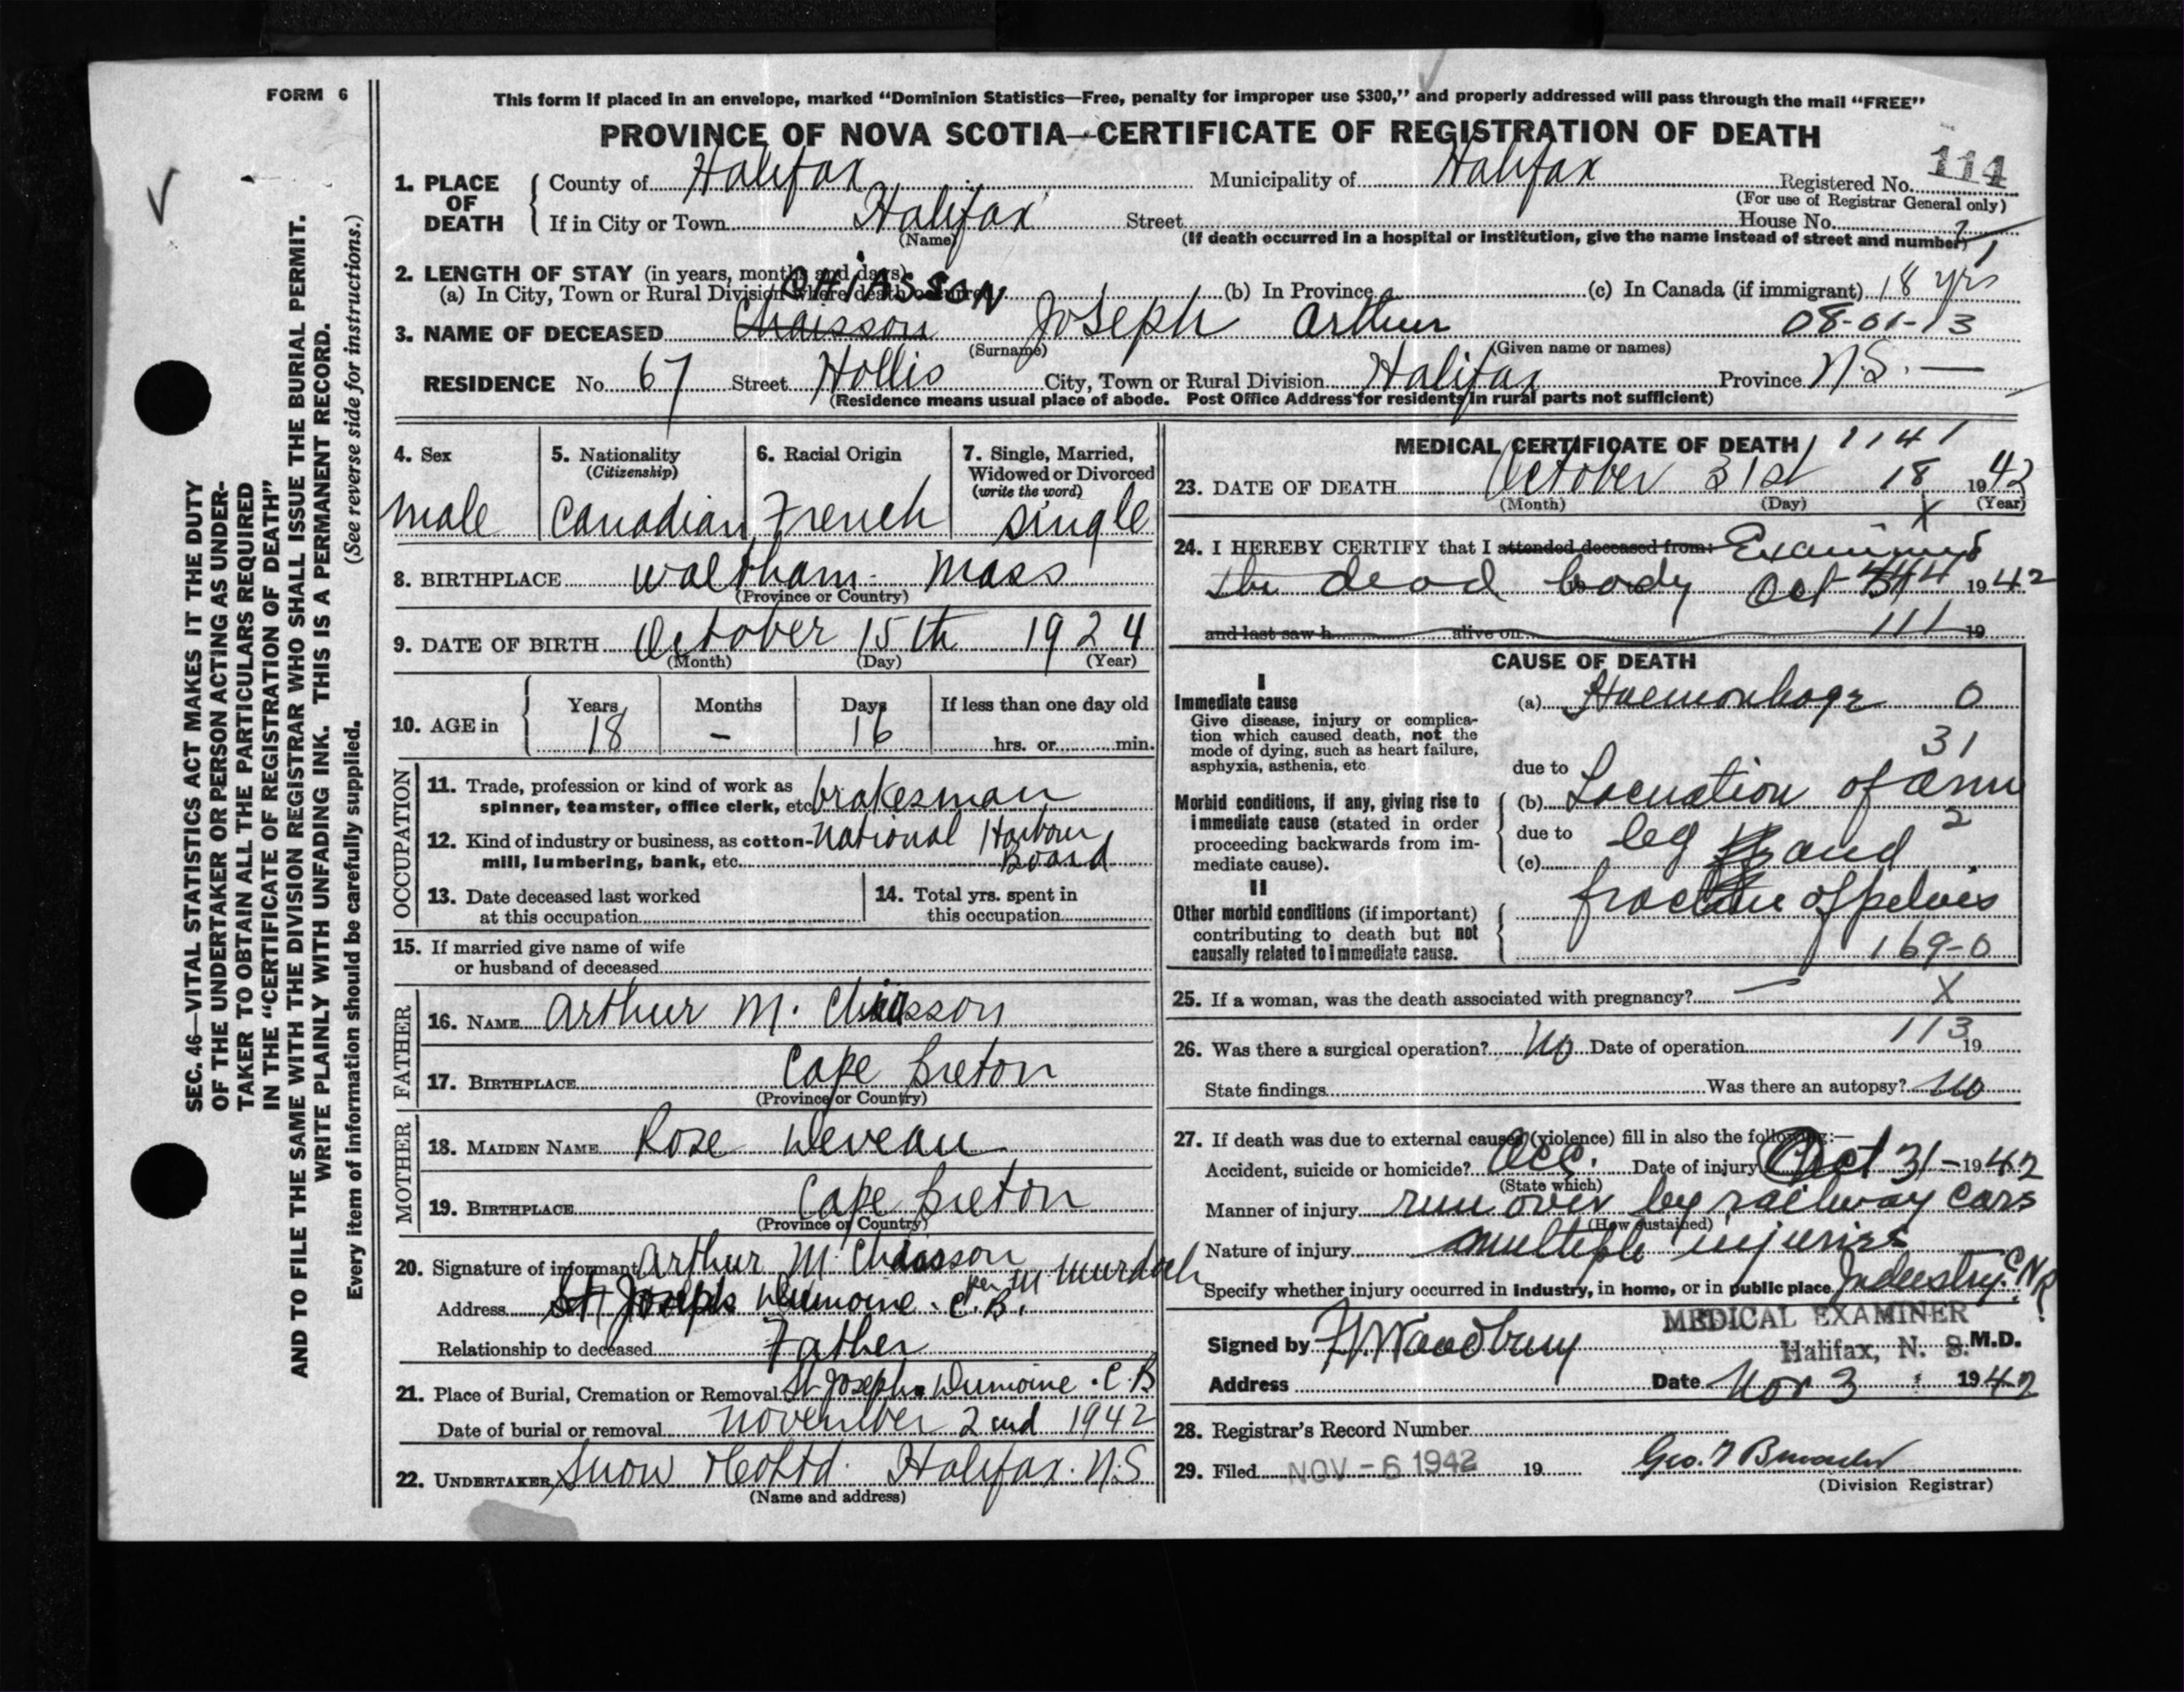 FORM 6
This form if placed in an envelope, marked “Dominion Statistics—Free, penalty for improper use $300,” and properly addressed will pass through the mail “FREE”
PROVINCE OF NOVA SCOTIA—CERTIFICATE OF REGISTRATION OF DEATH
SEC. 46—VITAL STATISTICS ACT MAKES IT THE DUTY
OF THE UNDERTAKER OR PERSON ACTING AS UNDER-
TAKER TO OBTAIN ALL THE PARTICULARS REQUIRED
IN THE “CERTIFICATE OF REGISTRATION OF DEATH”
AND TO FILE THE SAME WITH THE DIVISION REGISTRAR WHO SHALL ISSUE THE BURIAL PERMIT.
WRITE PLAINLY WITH UNFADING INK. THIS IS A PERMANENT RECORD.
Every item of information should be carefully supplied. (See reverse side for instructions.)
1. PLACE OF DEATH
County of Halifax Municipality of Halifax Registered No. 114
(For use of Registrar General only)
If in City or Town Halifax Street House No.
(Name) (If death occurred in a hospital or institution, give the name instead of street and number)
2. LENGTH OF STAY (in years, months and days)
(a) In City, Town or Rural Division where death occurred (b) In Province (c) In Canada (if immigrant) 18 yrs
CHIASSON
3. NAME OF DECEASED Chaisson Joseph Arthur 08-01-13
(Surname) (Given name or names)
RESIDENCE No. 67 Street Hollis City, Town or Rural Division Halifax Province N.S. —
(Residence means usual place of abode. Post Office Address for residents in rural parts not sufficient)
4. Sex 5. Nationality 6. Racial Origin 7. Single, Married,
(Citizenship) Widowed or Divorced
(write the word)
male Canadian French single
8. BIRTHPLACE Waltham Mass
(Province or Country)
9. DATE OF BIRTH October 15th 1924
(Month) (Day) (Year)
10. AGE in Years Months Days If less than one day old
18 - 16 hrs. or min.
OCCUPATION
11. Trade, profession or kind of work as
spinner, teamster, office clerk, etc. brakesman
12. Kind of industry or business, as cotton- National Harbour
mill, lumbering, bank, etc. Board
13. Date deceased last worked
at this occupation
14. Total yrs. spent in
this occupation
15. If married give name of wife
or husband of deceased
FATHER
16. NAME Arthur M. Chiasson
17. BIRTHPLACE Cape Breton
(Province or Country)
MOTHER
18. MAIDEN NAME Rose Deveau
19. BIRTHPLACE Cape Breton
(Province or Country)
20. Signature of informant Arthur M Chiasson
per M Murdoch
Address St Joseph Dumoine. C.B.
Relationship to deceased Father
21. Place of Burial, Cremation or Removal St Josephs Dumoine. C.B
Date of burial or removal November 2nd 1942
22. UNDERTAKER Snow & Co Ltd. Halifax. N.S
(Name and address)
MEDICAL CERTIFICATE OF DEATH 1141
23. DATE OF DEATH October 31st 18 1942
(Month) (Day) (Year)
X
24. I HEREBY CERTIFY that I attended deceased from: Examined
the dead body Oct 1942
and last saw h alive on 111 19
CAUSE OF DEATH
I
Immediate cause
Give disease, injury or complica-
tion which caused death, not the
mode of dying, such as heart failure,
asphyxia, asthenia, etc.
(a) Haemorrhage 0
31
due to
Morbid conditions, if any, giving rise to
immediate cause (stated in order
proceeding backwards from im-
mediate cause).
(b) of arm
due to 2
(c) leg and
II
Other morbid conditions (if important)
contributing to death but not
causally related to immediate cause.
fracture of pelvis
169-0
25. If a woman, was the death associated with pregnancy? — X
26. Was there a surgical operation? No Date of operation 113 19
State findings Was there an autopsy? No
27. If death was due to external causes (violence) fill in also the following:—
Accident, suicide or homicide? Acc. Date of injury Oct 31- 1942
(State which)
Manner of injury run over by railway cars
(How sustained)
Nature of injury multiple injuries
Specify whether injury occurred in industry, in home, or in public place Industry. CNR
MEDICAL EXAMINER
Signed by Woodbury Halifax, N. S. M.D.
Address Date Nov 3 1942
28. Registrar's Record Number
29. Filed NOV - 6 1942 19
(Division Registrar)